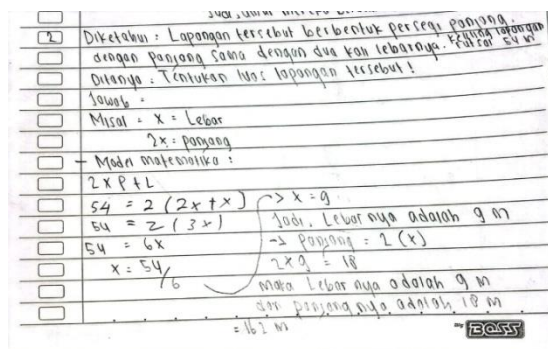 Jadi, umur
2 Diketahui : Lapangan tersebut berbentuk persegi panjang.
dengan panjang sama dengan dua kali lebarnya. keliling lapangan
futsal 54 m
Ditanya : Tentukan luas lapangan tersebut !
Jawab :
Misal : x = Lebar
2x : panjang
- Model matematika :
2 x P + L
54 = 2 (2x + x)
54 = 2 (3x)
54 = 6x
x = 54/6
-> x = 9
Jadi, Lebar nya adalah 9 m
-> panjang = 2 (x)
2 x 9 = 18
maka Lebar nya adalah 9 m
dan panjang nya adalah 18 m
= 162 m
My BOSS